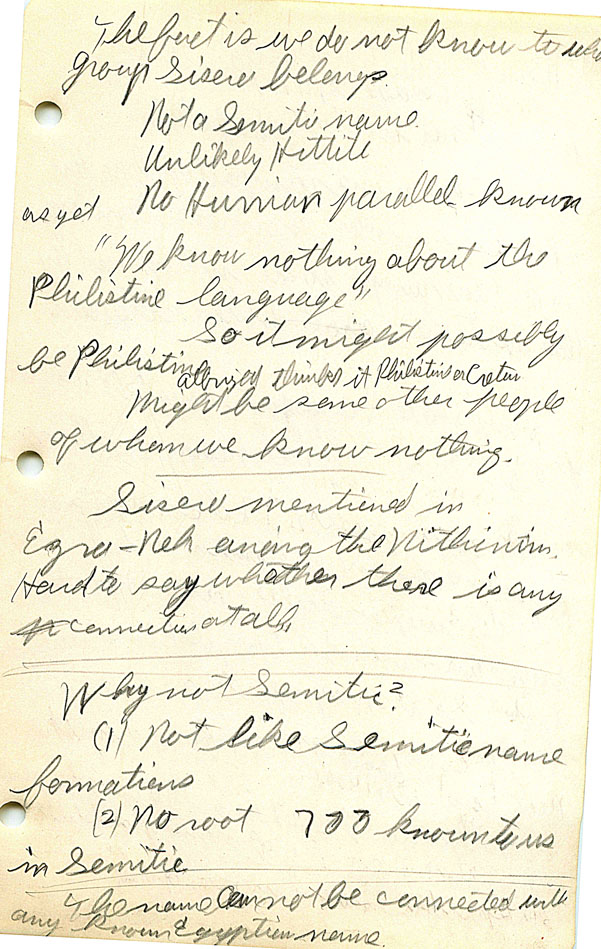 The fact is we do not know to
group Sisera belongs.
Not a Semitic name.
Unlikely Hittite
as yet No Hurrian parallel known
"We know nothing about the
Philistine language"
So it might possibly
be Philistine
Albright thinks it Philistine or Cretan
Might be some other people
of whom we know nothing.
Sisera mentioned in
Ezra-Neh among the Nithinim.
Hard to say whether there is any
connection at all.
Why not Semitic?
(1) Not like Semitic name
formations
(2) No root known to us
in Semitic
The name cannot be connected with
any known Egyptian name.